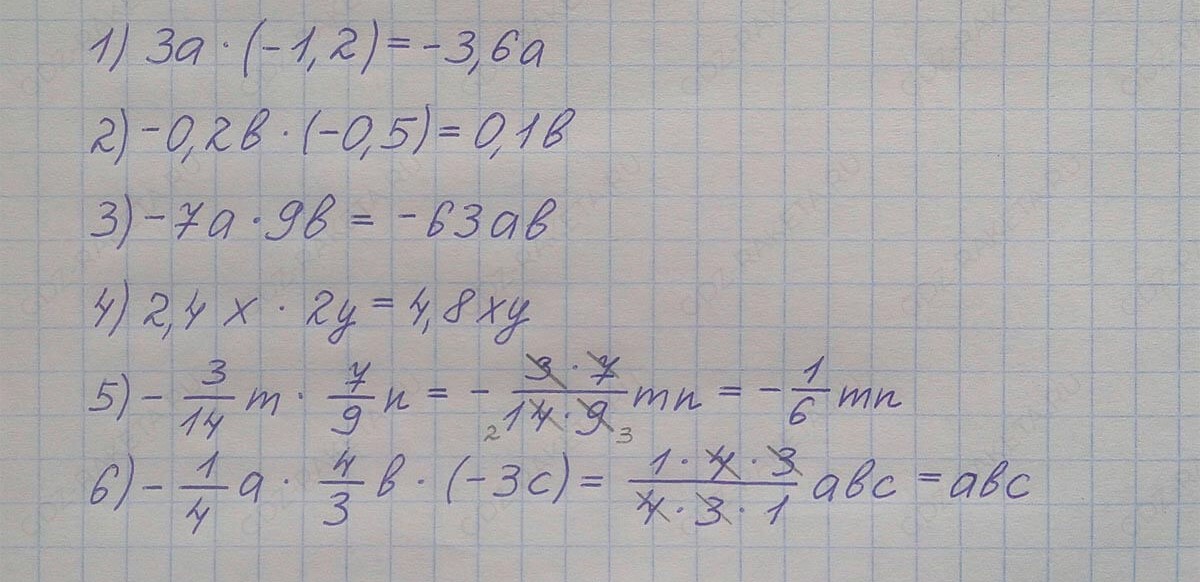 1) 3a · (-1,2) = -3,6a
2) -0,2b · (-0,5) = 0,1b
3) -7a · 9b = -63ab
4) 2,4x · 2y = 4,8xy
5) - 3/14 m · 7/9 n = - 3·7/14·9 mn = - 1/6 mn
2 3
6) - 1/4 a · 4/3 b · (-3c) = 1·4·3/4·3·1 abc = abc